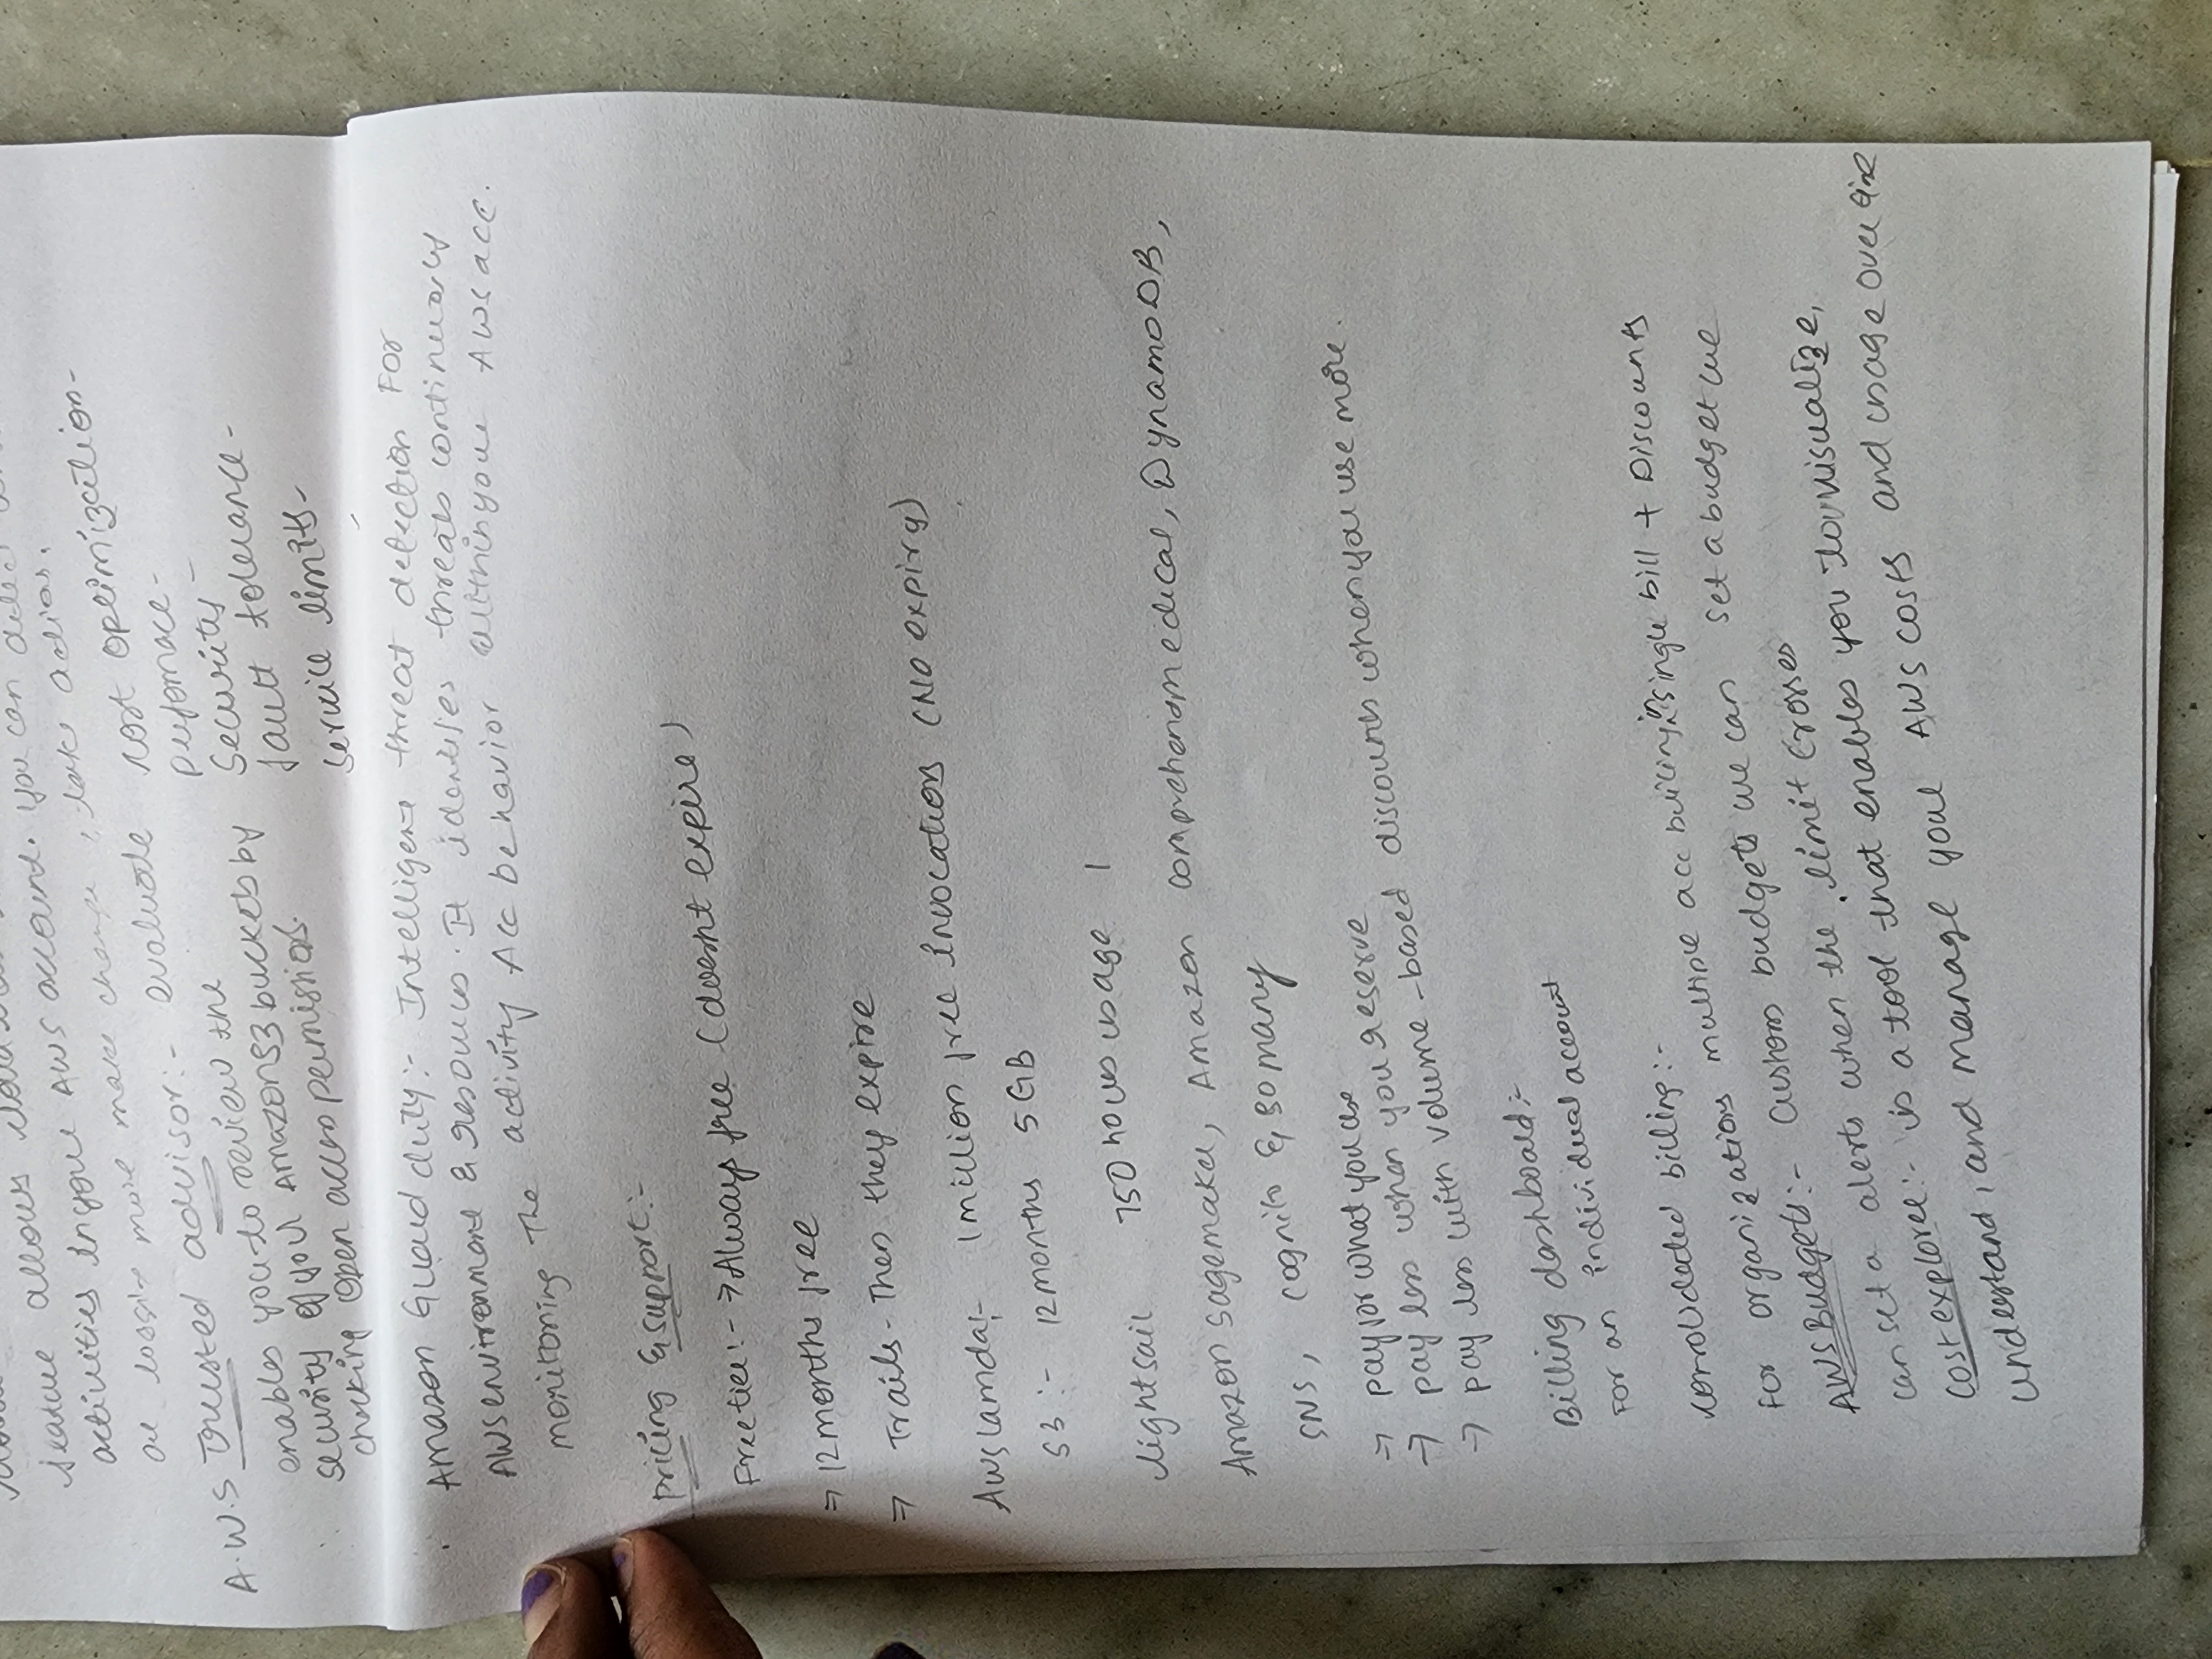 feature allows
activities in your AWS account. You can detect
are more make change, take action.
A.W.S Trusted advisor:- evaluate cost optimization-
perfomace-
Security-
fault tolerance-
service limits-
enables you to review the
security of your Amazon S3 buckets by
checking Open access permissions.
Amazon Guard duty:- Intelligent threat detection For
AWS environment & resources. It identifies threats continuously
monitoring The activity Acc behavior within your AWS acc.
Pricing & support:-
Free tier:- → Always free (doesnt expire)
⇒ 12 months free
⇒ Trails - Then they expire
AWS Lamda:- 1 million free invocations (No expiry)
S3 :- 12 months 5 GB
lightsail 750 hours usage |
Amazon sagemaker, Amazon comprehenmedical, DynamoDB,
SNS, cognito & so many
→ pay for what you use
→ pay less when you reserve
→ pay less with volume-based discounts when you use more.
Billing dashboard:-
For an individual account
consolidated billing:-
For organizations multiple acc builing in single bill + Discounts
AWS Budgets:- Custom budgets we can set a budget we
can set a alerts when the limit crosses
Cost explorer:- is a tool that enables you to visualize,
understand, and manage your AWS costs and usage over time